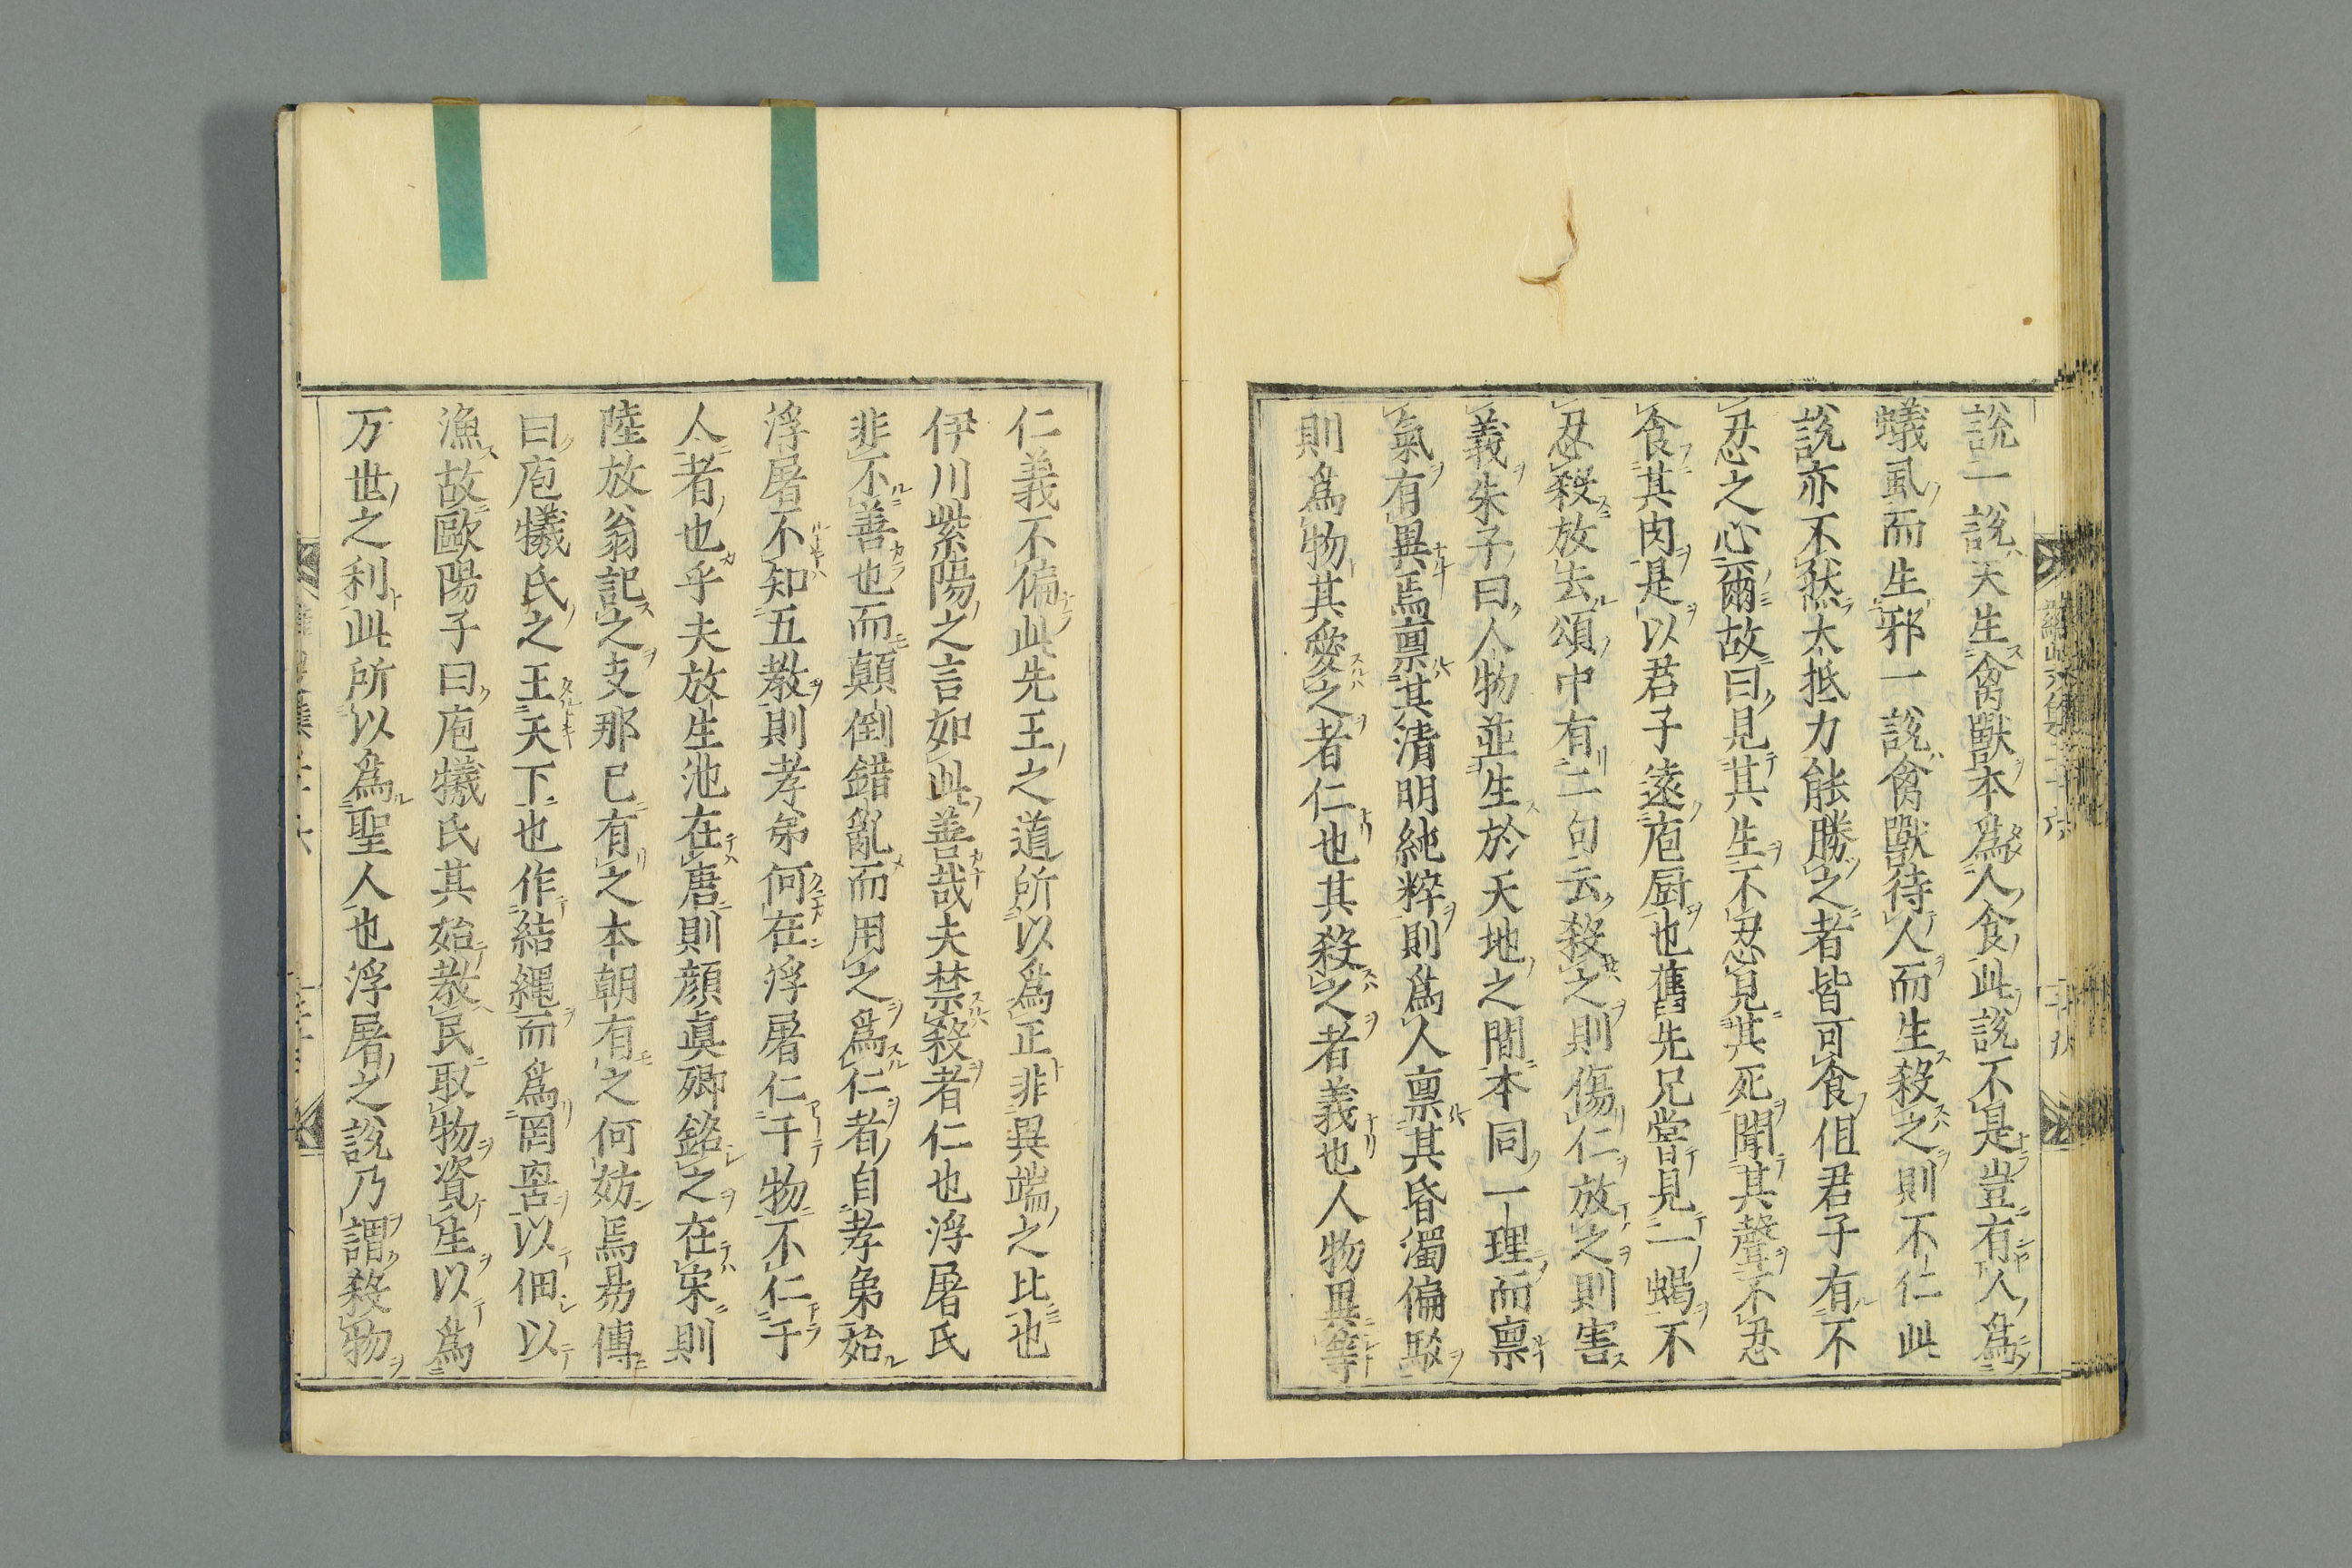 説一説天生禽獸本爲人食此説不是豈有人爲
蟻虱而生邪一説禽獸待人而生殺之則不仁此
説亦不然太抵力能勝之者皆可食但君子有不
忍之心爾故曰見其生不忍見其死聞其聲不忍
食其肉是以君子遠庖厨也舊先兄嘗見一蝎不
忍殺放去頌中有二句云殺之則傷仁放之則害
義朱子曰人物並生於天地之間本同一理而禀
氣有異焉禀其清明純粹則爲人禀其昏濁偏駁
則爲物其愛之者仁也其殺之者義也人物異等
仁義不偏此先王之道所以爲正非異端之比也
伊川紫陽之言如此善哉夫禁殺者仁也浮屠氏
非不善也而顛倒錯亂而用之爲仁者自孝弟始
浮屠不知五教則孝弟何在浮屠仁于物不仁于
人者也乎夫放生池在唐則顔眞卿銘之在宋則
陸放翁記之支那已有之本朝有之何妨焉易傳
曰庖犧氏之王天下也作結繩而爲罔罟以佃以
漁故歐陽子曰庖犧氏其始教民取物資生以爲
万世之利此所以爲聖人也浮屠之説乃謂殺物